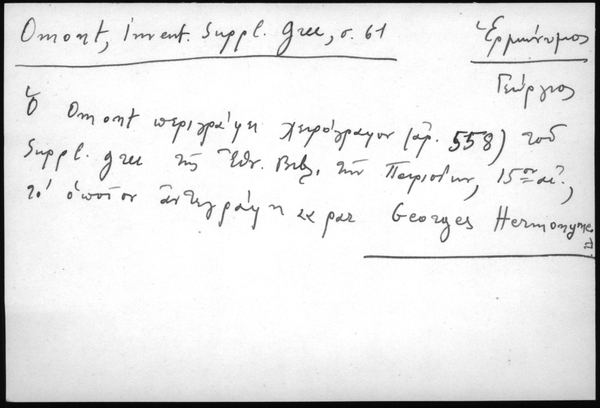 Omont, Invent. Suppl. Grec, σ. 61
Ἑρμώνυμος
Γεώργιος
Ὁ Omont περιγράφει χειρόγραφον (ἀρ. 558) τοῦ
Suppl. grec τῆς Ἐθν. Βιβλ. τῶν Παρισίων, 15ου αἰ.,
τὸ ὁποῖον ἀντεγράφη παρὰ Georges Hermonyme